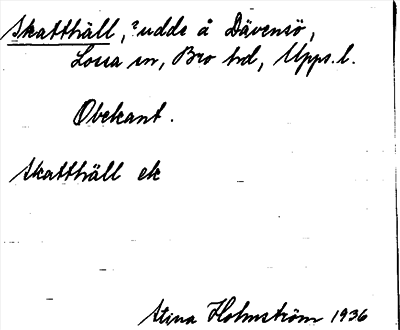 Skatthäll, ? udde å Dävensö,
Lossa sn, Bro hd, Upps. l.
Obekant.
Skatthäll ek
Stina Holmström 1936